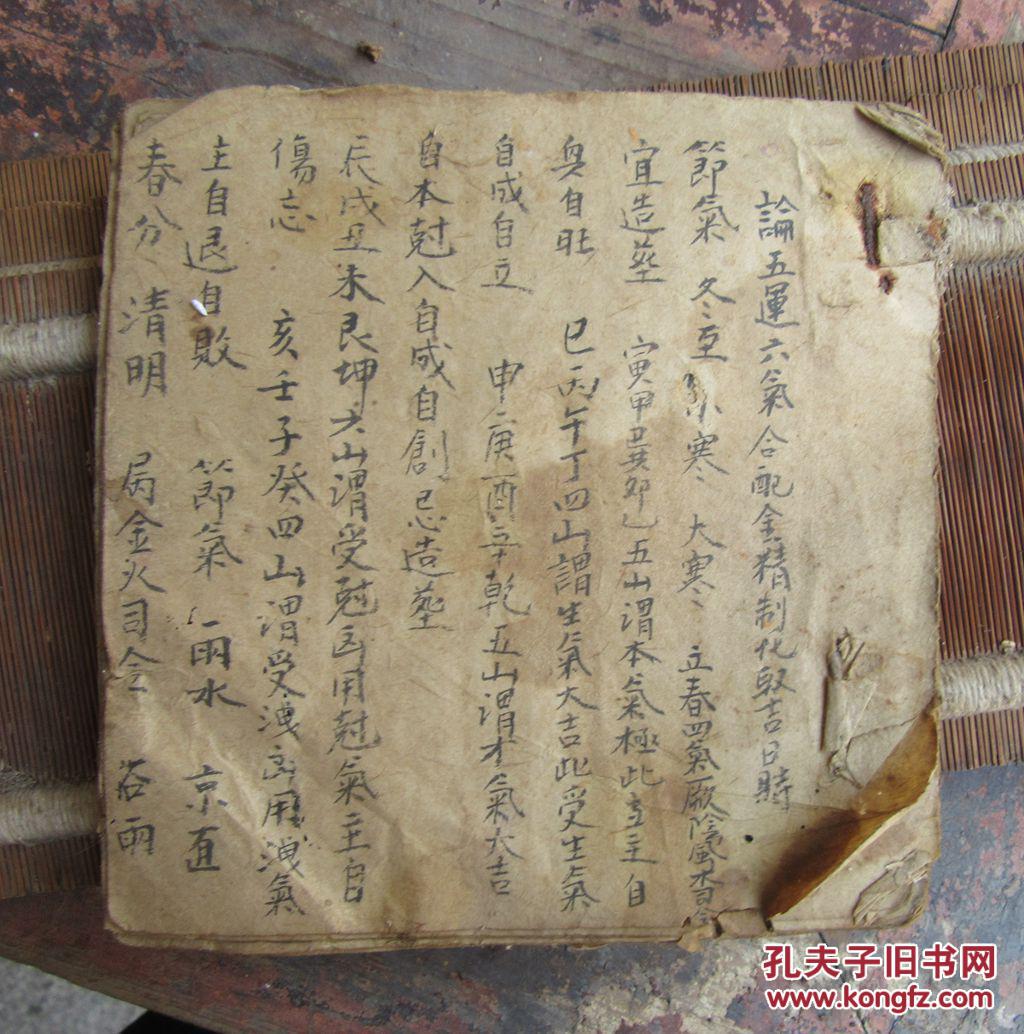 論五運六氣合配金精制化取吉日時
節氣 冬至 小寒 大寒 立春四氣厥陰風木司令
宜造塟 寅甲丑癸卯乙五山謂本氣極此言主自
與自旺 巳丙午丁四山謂生氣大吉此受生氣
自成自立 申庚酉辛乾五山謂才氣大吉
自本尅入自成自創 忌造塟
辰戌丑未艮坤六山謂受尅凶用尅氣主自
傷忘 亥壬子癸四山謂受洩凶用洩氣
主自退自敗 節氣 雨水 京直
春分 清明 局金火司令 谷雨
孔夫子旧书网
www.kongfz.com